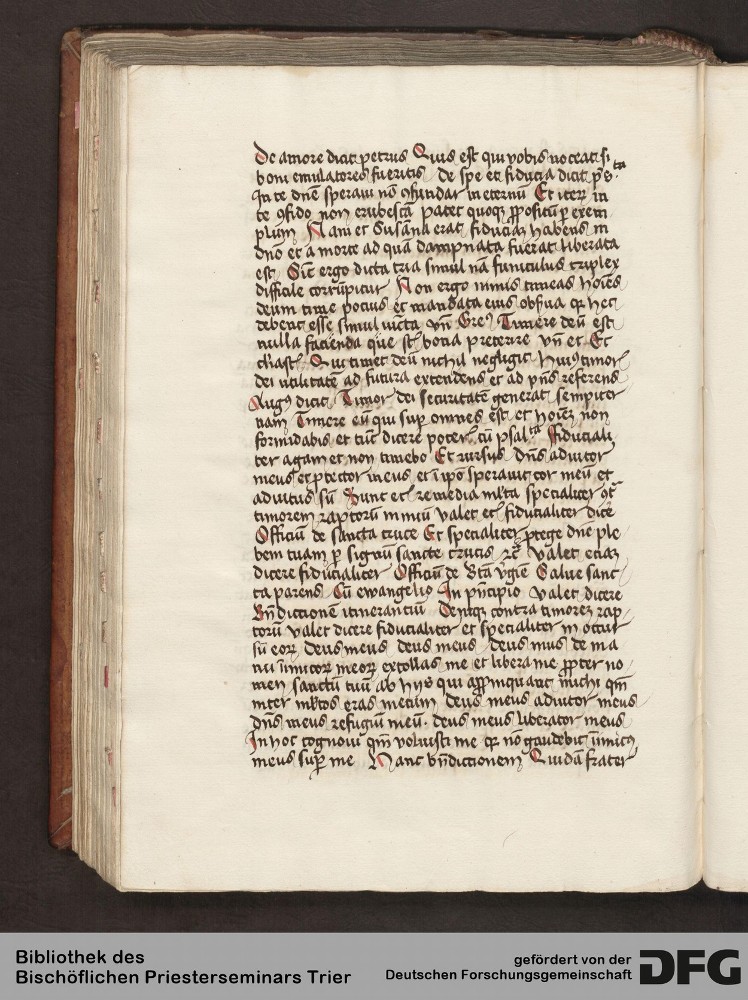 De amore dicit petrus Quis est qui vobis noceat si
boni emulatores fueritis de spe et fiducia dicit ps
In te dne speravi no confundar in eternu Et iteru in
te confido non erubesca patet quoq p exem
plum Nam et Susanna erat fiducia habens in
dno et a morte ad qua dampnata fuerat liberata
est Sic ergo dicta tria simul na funiculus triplex
difficile corrupitur Non ergo nimis timeas hoies
deum time pocius et mandata eius obs(er)ua q hec
debent esse simul iuncta vn Greg Timere deu est
nulla facienda que st bona preterire vn et Ec
clast Qui timet deu nichil negligit Huius timor
dei utilitate ad futura extendens et ad pns referens
Augs dicit Timor dei securitate generat sempiter
nam Timere eu qui sup omnes est et hoiez non
formidabis et tuc dicere poter cu psalta Fiduciali
ter agam et non timebo Et rursus dns adiutor
meus et ptector meus et i ipo speravit cor meu et
adiutus su Sunt et remedia specialiter
timorem raptoru nimiu valet et fiducialiter dice
Officiu de sancta cruce Et specialiter ptege dne ple
bem tuam p signu sancte crucis valet eciaz
dicere fiducialiter Officiu de bta vgie Salue sanc
ta parens Cu ewangelio In pncipio valet dicere
bndictione itinerantiu Deniq contra timorez rap
toru valet dicere fiducialiter et specialiter in occur
su eor deus meus deus meus deus mus de ma
nu inimicor meor extollas me et libera me ppter no
men sanctu tuu ab hys qui appinquant michi qm
inter mltos eras mecum deus meus adiutor meus
dns meus refugiu meu deus meus liberator meus
In hoc cognoui qm voluisti me q no gaudebit inimicus
meus sup me Hanc bndictionem Quidam frater
Bibliothek des
Bischöflichen Priesterseminars Trier
gefördert von der
Deutschen Forschungsgemeinschaft
DFG